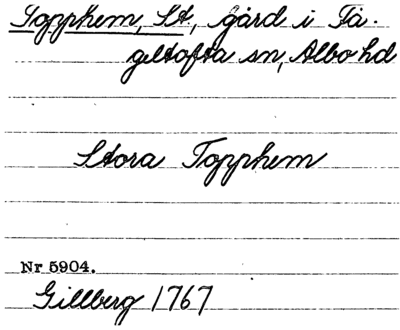 Topphem, St, gård i Få-
geltofta sn, Albo hd
Stora Topphem
Nr 5904.
Gillberg 1767